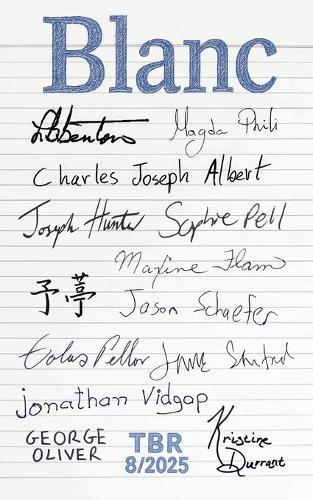 Blanc
Magda Phili
Charles Joseph Albert
Joseph Hunter Sophie Pell
Maxine Flam
予葶 Jason Schaefer
Jonathan Vidgop
GEORGE
OLIVER
TBR
8/2025
Kristine
Durrant